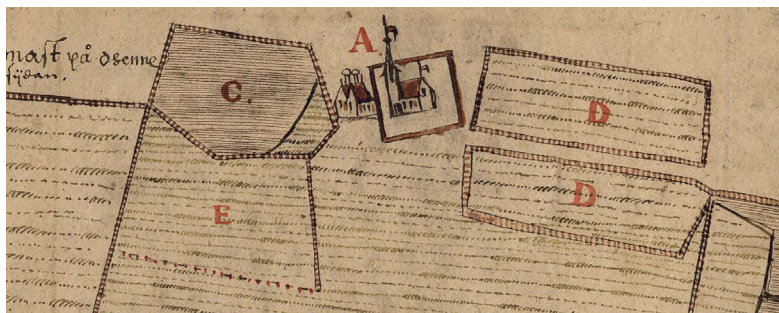 A.
mast på Osenne
sijdan.
C.
D
D
E